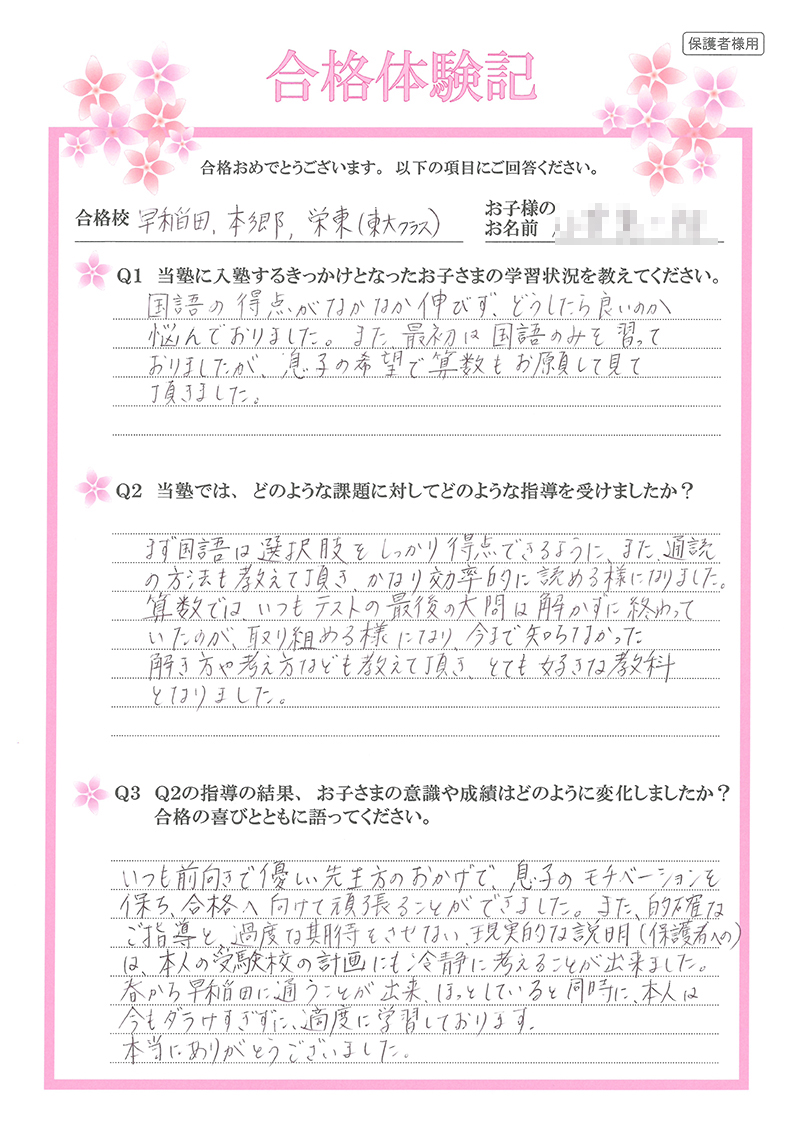 保護者様用
合格体験記
合格おめでとうございます。以下の項目にご回答ください。
合格校 早稲田, 本郷, 栄東(東大クラス)
お子様の
お名前
Q1 当塾に入塾するきっかけとなったお子さまの学習状況を教えてください。
国語の得点がなかなか伸びず、どうしたら良いのか
悩んでおりました。また、最初は国語のみを習って
おりましたが、息子の希望で算数もお願いして見て
頂きました。
Q2 当塾では、どのような課題に対してどのような指導を受けましたか？
まず国語は選択肢をしっかり得点できるように、また、通読
の方法も教えて頂き、かなり効率的に読める様になりました。
算数では、いつもテストの最後の大問は解かずに終わって
いたのが、取り組める様になり、今まで知らなかった
解き方や考え方なども教えて頂き、とても好きな教科
となりました。
Q3 Q2の指導の結果、お子さまの意識や成績はどのように変化しましたか？
合格の喜びとともに語ってください。
いつも前向きで優しい先生方のおかげで、息子のモチベーションを
保ち、合格へ向けて頑張ることができました。また、的確な
ご指導と、過度な期待をさせない、現実的な説明(保護者への)
は、本人の受験校の計画にも冷静に考えることが出来ました。
春から早稲田に通うことが出来、ほっとしていると同時に、本人は
今もダラけすぎずに、適度に学習しております。
本当にありがとうございました。